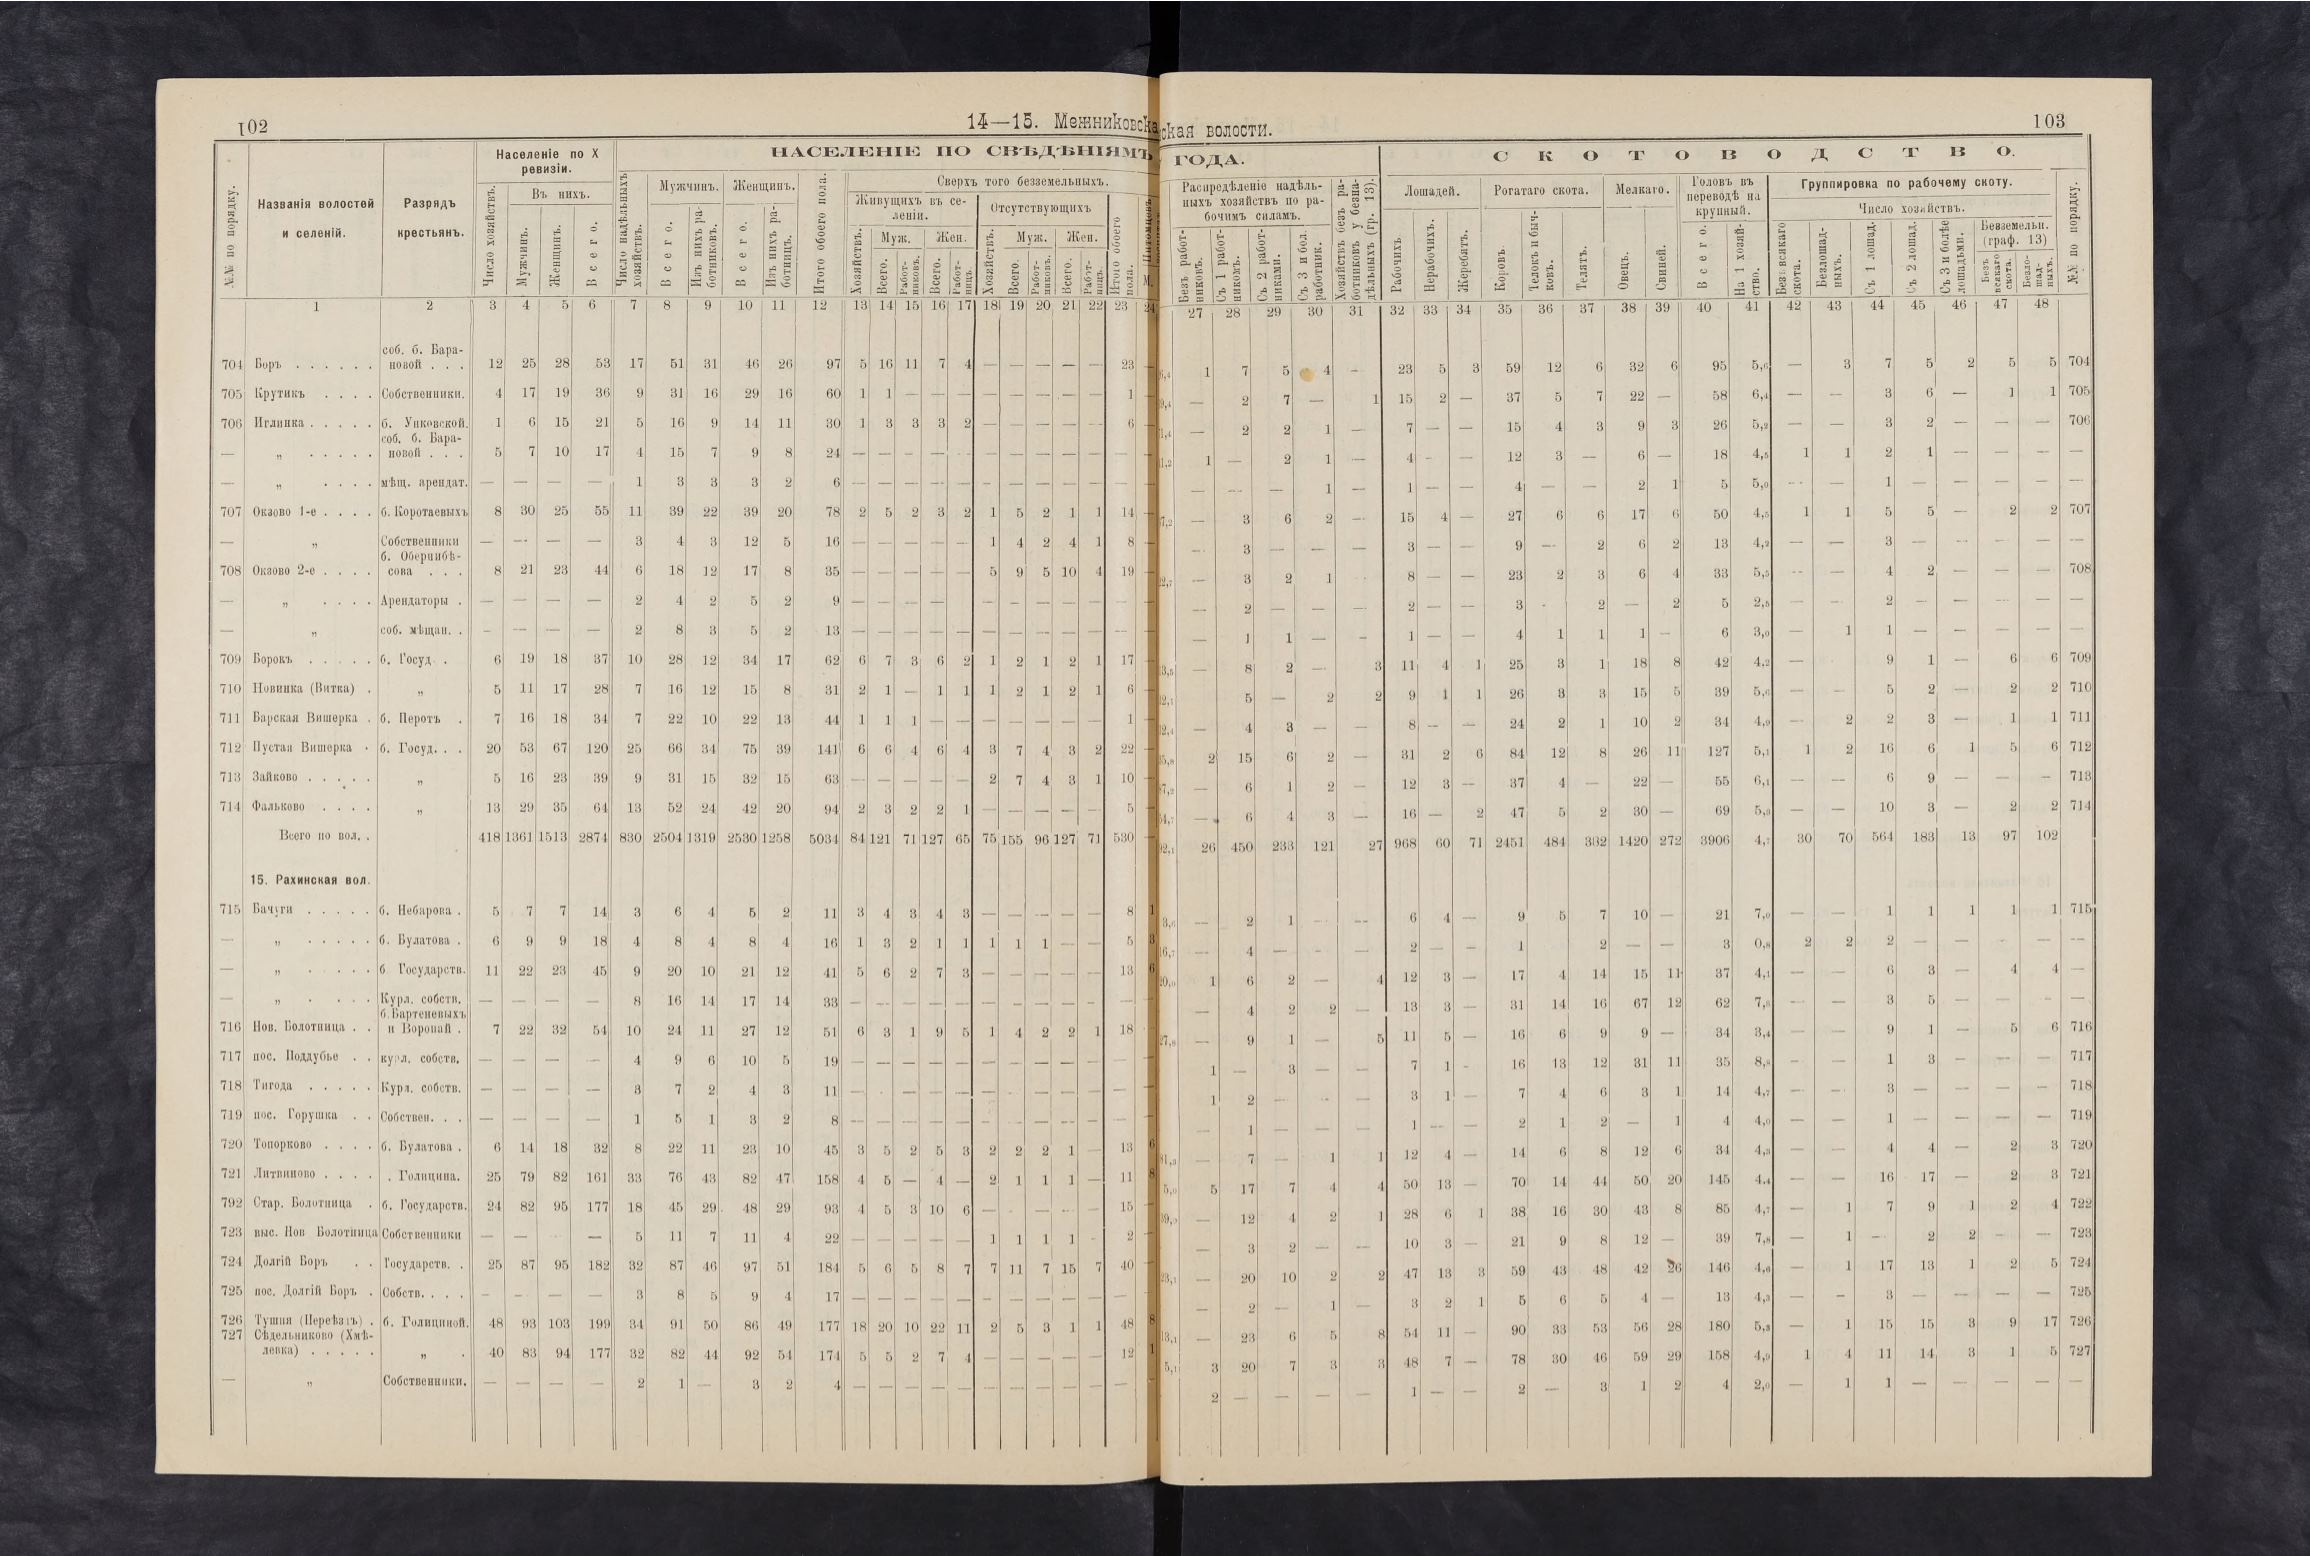 102
14—15. Межниковска
ская волости.
103
№№ по порядку.
Названія волостей и селеній.
Разрядъ крестьянъ.
Населеніе по X ревизіи.
Число хозяйствъ.
Въ нихъ.
Мужчинъ.
Женщинъ.
Всего.
НАСЕЛЕНІЕ ПО СВѢДѢНІЯМЪ
ГОДА.
Число надѣльныхъ хозяйствъ.
Мужчинъ.
Всего.
Изъ нихъ работниковъ.
Женщинъ.
Всего.
Изъ нихъ работницъ.
Итого обоего пола.
Сверхъ того безземельныхъ.
Живущихъ въ селеніи.
Хозяйствъ.
Муж.
Всего.
Работниковъ.
Жен.
Всего.
Работницъ.
Отсутствующихъ
Хозяйствъ.
Муж.
Всего.
Работниковъ.
Жен.
Всего.
Работницъ.
Итого обоего пола.
М.
Распредѣленіе надѣльныхъ хозяйствъ по рабочимъ силамъ.
Безъ работниковъ.
Съ 1 работникомъ.
Съ 2 работниками.
Съ 3 и бол. работник.
Хозяйствъ безъ работниковъ у безнадѣльныхъ (гр. 13).
СКОТОВОДСТВО.
Лошадей.
Рабочихъ
Нерабочихъ.
Жеребятъ.
Рогатаго скота.
Коровъ.
Телокъ и бычковъ.
Телятъ.
Мелкаго.
Овецъ.
Свиней.
Головъ въ переводѣ на крупный.
Всего.
На 1 хозяйство.
Группировка по рабочему скоту.
Число хозяйствъ.
Безъ всякаго скота.
Безлошадныхъ.
Съ 1 лошад.
Съ 2 лошад.
Съ 3 и болѣе лошадьми.
Безземельн. (граф. 13)
Безъ всякаго скота.
Безлошадныхъ.
№№ по порядку.
1 2 3 4 5 6 7 8 9 10 11 12 13 14 15 16 17 18 19 20 21 22 23 24 27 28 29 30 31 32 33 34 35 36 37 38 39 40 41 42 43 44 45 46 47 48
704 Боръ . . . . . . соб. б. Барановой . . . 12 25 28 53 17 51 31 46 26 97 5 16 11 7 4 — — — — — 23 — 1 7 5 4 — 23 5 3 59 12 6 32 6 95 5,6 — 3 7 5 2 5 5 704
705 Крутикъ . . . . Собственники. 4 17 19 36 9 31 16 29 16 60 1 1 — — — — — — — — 1 — — 2 7 — 1 15 2 — 37 5 7 22 — 58 6,4 — — 3 6 — 1 1 705
706 Иглинка . . . . . б. Унковской. 1 6 15 21 5 16 9 14 11 30 1 3 3 3 2 — — — — — 6 — — 2 2 1 — 7 — — 15 4 3 9 3 26 5,2 — — 3 2 — — — 706
— „ . . . . . соб. б. Барановой . . . 5 7 10 17 4 15 7 9 8 24 — — — — — — — — — — — — 1 — 2 1 — 4 — — 12 3 — 6 — 18 4,5 1 1 2 1 — — — —
— „ . . . . мѣщ. арендат. — — — — 1 3 3 3 2 6 — — — — — — — — — — — — — — — 1 — 1 — — 4 — — 2 1 5 5,0 — — 1 — — — — —
707 Окзово 1-е . . . . б. Коротаевыхъ 8 30 25 55 11 39 22 39 20 78 2 5 2 3 2 1 5 2 1 1 14 — — 3 6 2 — 15 4 — 27 6 6 17 6 50 4,5 1 1 5 5 — 2 2 707
— „ Собственники — — — — 3 4 3 12 5 16 — — — — — 1 4 2 4 1 8 — — 3 — — — 3 — — 9 — 2 6 2 13 4,2 — — 3 — — — — —
708 Окзово 2-е . . . . б. Обернибѣсова . . . 8 21 23 44 6 18 12 17 8 35 — — — — — 5 9 5 10 4 19 — — 3 2 1 — 8 — — 23 2 3 6 4 33 5,5 — — 4 2 — — — 708
— „ . . . . Арендаторы . — — — — 2 4 2 5 2 9 — — — — — — — — — — — — — 2 — — — 2 — — 3 - 2 — 2 5 2,5 — — 2 — — — — —
— „ соб. мѣщан. . — — — — 2 8 3 5 2 13 — — — — — — — — — — — — — 1 1 — — 1 — — 4 1 1 1 — 6 3,0 — 1 1 — — — — —
709 Борокъ . . . . . б. Госуд . . 6 19 18 37 10 28 12 34 17 62 6 7 3 6 2 1 2 1 2 1 17 — 8 2 — 3 11 4 1 25 3 1 18 8 42 4,2 — 9 1 — 6 6 709
710 Новинка (Витка) . „ 5 11 17 28 7 16 12 15 8 31 2 1 — 1 1 1 2 1 2 1 6 — 5 — 2 2 9 1 1 26 3 3 15 5 39 5,6 — — 5 2 — 2 2 710
711 Барская Вишерка . б. Перотъ . 7 16 18 34 7 22 10 22 13 44 1 1 1 — — — — — — — 1 — — 4 3 — — 8 — — 24 2 1 10 2 34 4,9 — 2 2 3 — 1 1 711
712 Пустая Вишерка . б. Госуд. . . 20 53 67 120 25 66 34 75 39 141 6 6 4 6 4 3 7 4 3 2 22 — 2 15 6 2 — 31 2 6 84 12 8 26 11 127 5,1 1 2 16 6 1 5 6 712
713 Зайково . . . . . „ 5 16 23 39 9 31 15 32 15 63 — — — — — 2 7 4 3 1 10 — — 6 1 2 — 12 3 — 37 4 — 22 — 55 6,1 — — 6 9 — — — 713
714 Фальково . . . . „ 13 29 35 64 13 52 24 42 20 94 2 3 2 2 1 — — — — — 5 — — 6 4 3 — 16 — 2 47 5 2 30 — 69 5,3 — — 10 3 — 2 2 714
Всего по вол. . 418 1361 1513 2874 830 2504 1319 2530 1258 5034 84 121 71 127 65 75 155 96 127 71 530 — 26 450 233 121 27 968 60 71 2451 484 332 1420 272 3906 4,7 30 70 564 183 13 97 102
15. Рахинская вол.
715 Бачуги . . . . . б. Небарова . 5 7 7 14 3 6 4 5 2 11 3 4 3 4 3 — — — — — 8 1 — 2 1 — — 6 4 — 9 5 7 10 — 21 7,0 — — 1 1 1 1 1 715
— „ . . . . . б. Булатова . 6 9 9 18 4 8 4 8 4 16 1 3 2 1 1 1 1 1 — — 5 3 — 4 — — — 2 — — 1 2 — — 3 0,8 2 2 2 — — — — —
— „ . . . . . б. Государств. 11 22 23 45 9 20 10 21 12 41 5 6 2 7 3 — — — — — 13 6 1 6 2 — 4 12 3 — 17 4 14 15 11 37 4,1 — — 6 3 — 4 4 —
— „ . . . . Курл. собств. — — — — 8 16 14 17 14 33 — — — — — — — — — — — — 4 2 2 — 13 3 — 31 14 16 67 12 62 7,8 — — 3 5 — — — —
716 Нов. Болотница . . б. Бартеневыхъ и Воронай . 7 22 32 54 10 24 11 27 12 51 6 3 1 9 5 1 4 2 2 1 18 — — 9 1 — 5 11 5 — 16 6 9 9 — 34 3,4 — — 9 1 — 5 6 716
717 пос. Поддубье . . курл. собств. — — — — 4 9 6 10 5 19 — — — — — — — — — — — — 1 — 3 — — 7 1 - 16 13 12 31 11 35 8,8 — — 1 3 — — — 717
718 Тигода . . . . . Курл. собств. — — — — 3 7 2 4 3 11 — — — — — — — — — — — — 1 2 — — — 3 1 — 7 4 6 3 1 14 4,7 — — 3 — — — — 718
719 пос. Горушка . . Собствен. . . — — — — 1 5 1 3 2 8 — — — — — — — — — — — — — 1 — — — 1 — — 2 1 2 — 1 4 4,0 — — 1 — — — — 719
720 Топорково . . . . б. Булатова . 6 14 18 32 8 22 11 23 10 45 3 5 2 5 3 2 2 2 1 — 13 6 — 7 — 1 1 12 4 — 14 6 8 12 6 34 4,3 — — 4 4 — 2 3 720
721 Литвиново . . . . . Голицина. 25 79 82 161 33 76 43 82 47 158 4 5 — 4 — 2 1 1 1 — 11 8 5 17 7 4 4 50 13 — 70 14 44 50 20 145 4,4 — — 16 17 — 2 3 721
792 Стар. Болотница . б. Государств. 24 82 95 177 18 45 29 48 29 93 4 5 3 10 6 — — — — — 15 — — 12 4 2 1 28 6 1 38 16 30 43 8 85 4,7 — 1 7 9 1 2 4 722
723 выс. Нов Болотница Собственники — — — — 5 11 7 11 4 22 — — — — — 1 1 1 1 - 2 — 3 2 — — 10 3 — 21 9 8 12 — 39 7,8 — 1 - 2 2 — — 723
724 Долгій Боръ . . Государств. . 25 87 95 182 32 87 46 97 51 184 5 6 5 8 7 7 11 7 15 7 40 — — 20 10 2 2 47 13 3 59 43 48 42 26 146 4,6 — 1 17 13 1 2 5 724
725 пос. Долгій Боръ . Собств. . . . — — — — 3 8 5 9 4 17 — — — — — — — — — — — — — 2 — 1 — 3 2 1 5 6 5 4 — 13 4,3 — — 3 — — — — 725
726 Тушня (Переѣздъ) . б. Голициной. 48 93 103 199 34 91 50 86 49 177 18 20 10 22 11 2 5 3 1 1 48 8 — 23 6 5 8 54 11 — 90 33 53 56 28 180 5,3 — 1 15 15 3 9 17 726
727 Сѣдельниково (Хмѣлевка) . . . . . „ . 40 83 94 177 32 82 44 92 54 174 5 5 2 7 4 — — — — — 12 1 3 20 7 3 3 48 7 — 78 30 46 59 29 158 4,9 1 4 11 14 3 1 5 727
— „ Собственники. — — — — 2 1 — 3 2 4 — — — — — — — — — — — — 2 — — — — 1 — — 2 — 3 1 2 4 2,0 — 1 1 — — — — —